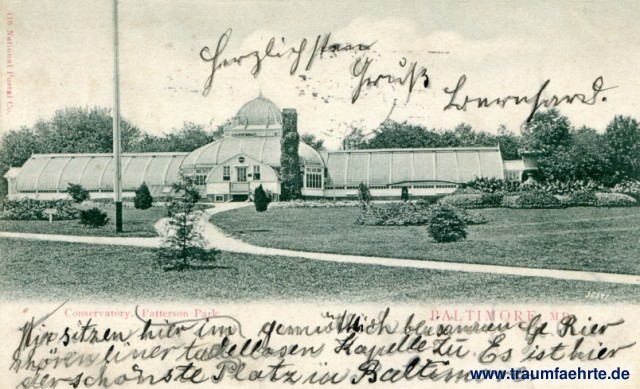 110 National Postal Co.
Herzlichsten
Gruß
Bernhard.
Conservatory, Patterson Park
BALTIMORE, MD.
Wir sitzen hier im gemütlich beisammen bei Bier
u. hören einer tadellosen Kapelle zu. Es ist hier
der schönste Platz in Baltimore.
www.traumfaehrte.de